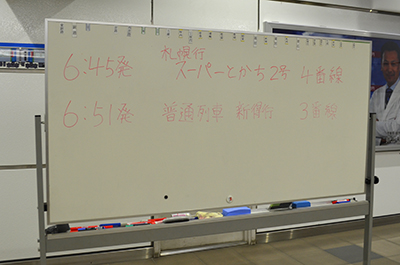 札幌行
6:45発 スーパーとかち2号 4番線
6:51発 普通列車 新得行 3番線